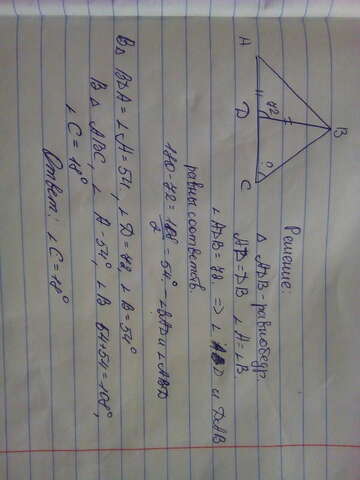 B
A
D
C
72
?
Решение:
Δ ADB - равнобедр.
AD = DB ∠A = ∠B.
∠ADB = 72 => ∠ ABD и DAB
равны соответств.
180 - 72 = 108/2 = 54° - ∠BAD и ∠ABD
В Δ BDA = ∠A = 54, ∠D = 72, ∠B = 54°
В Δ ABC, ∠ A - 54°, ∠B 54+54 = 108°,
∠C = 18°
Ответ: ∠C = 18°